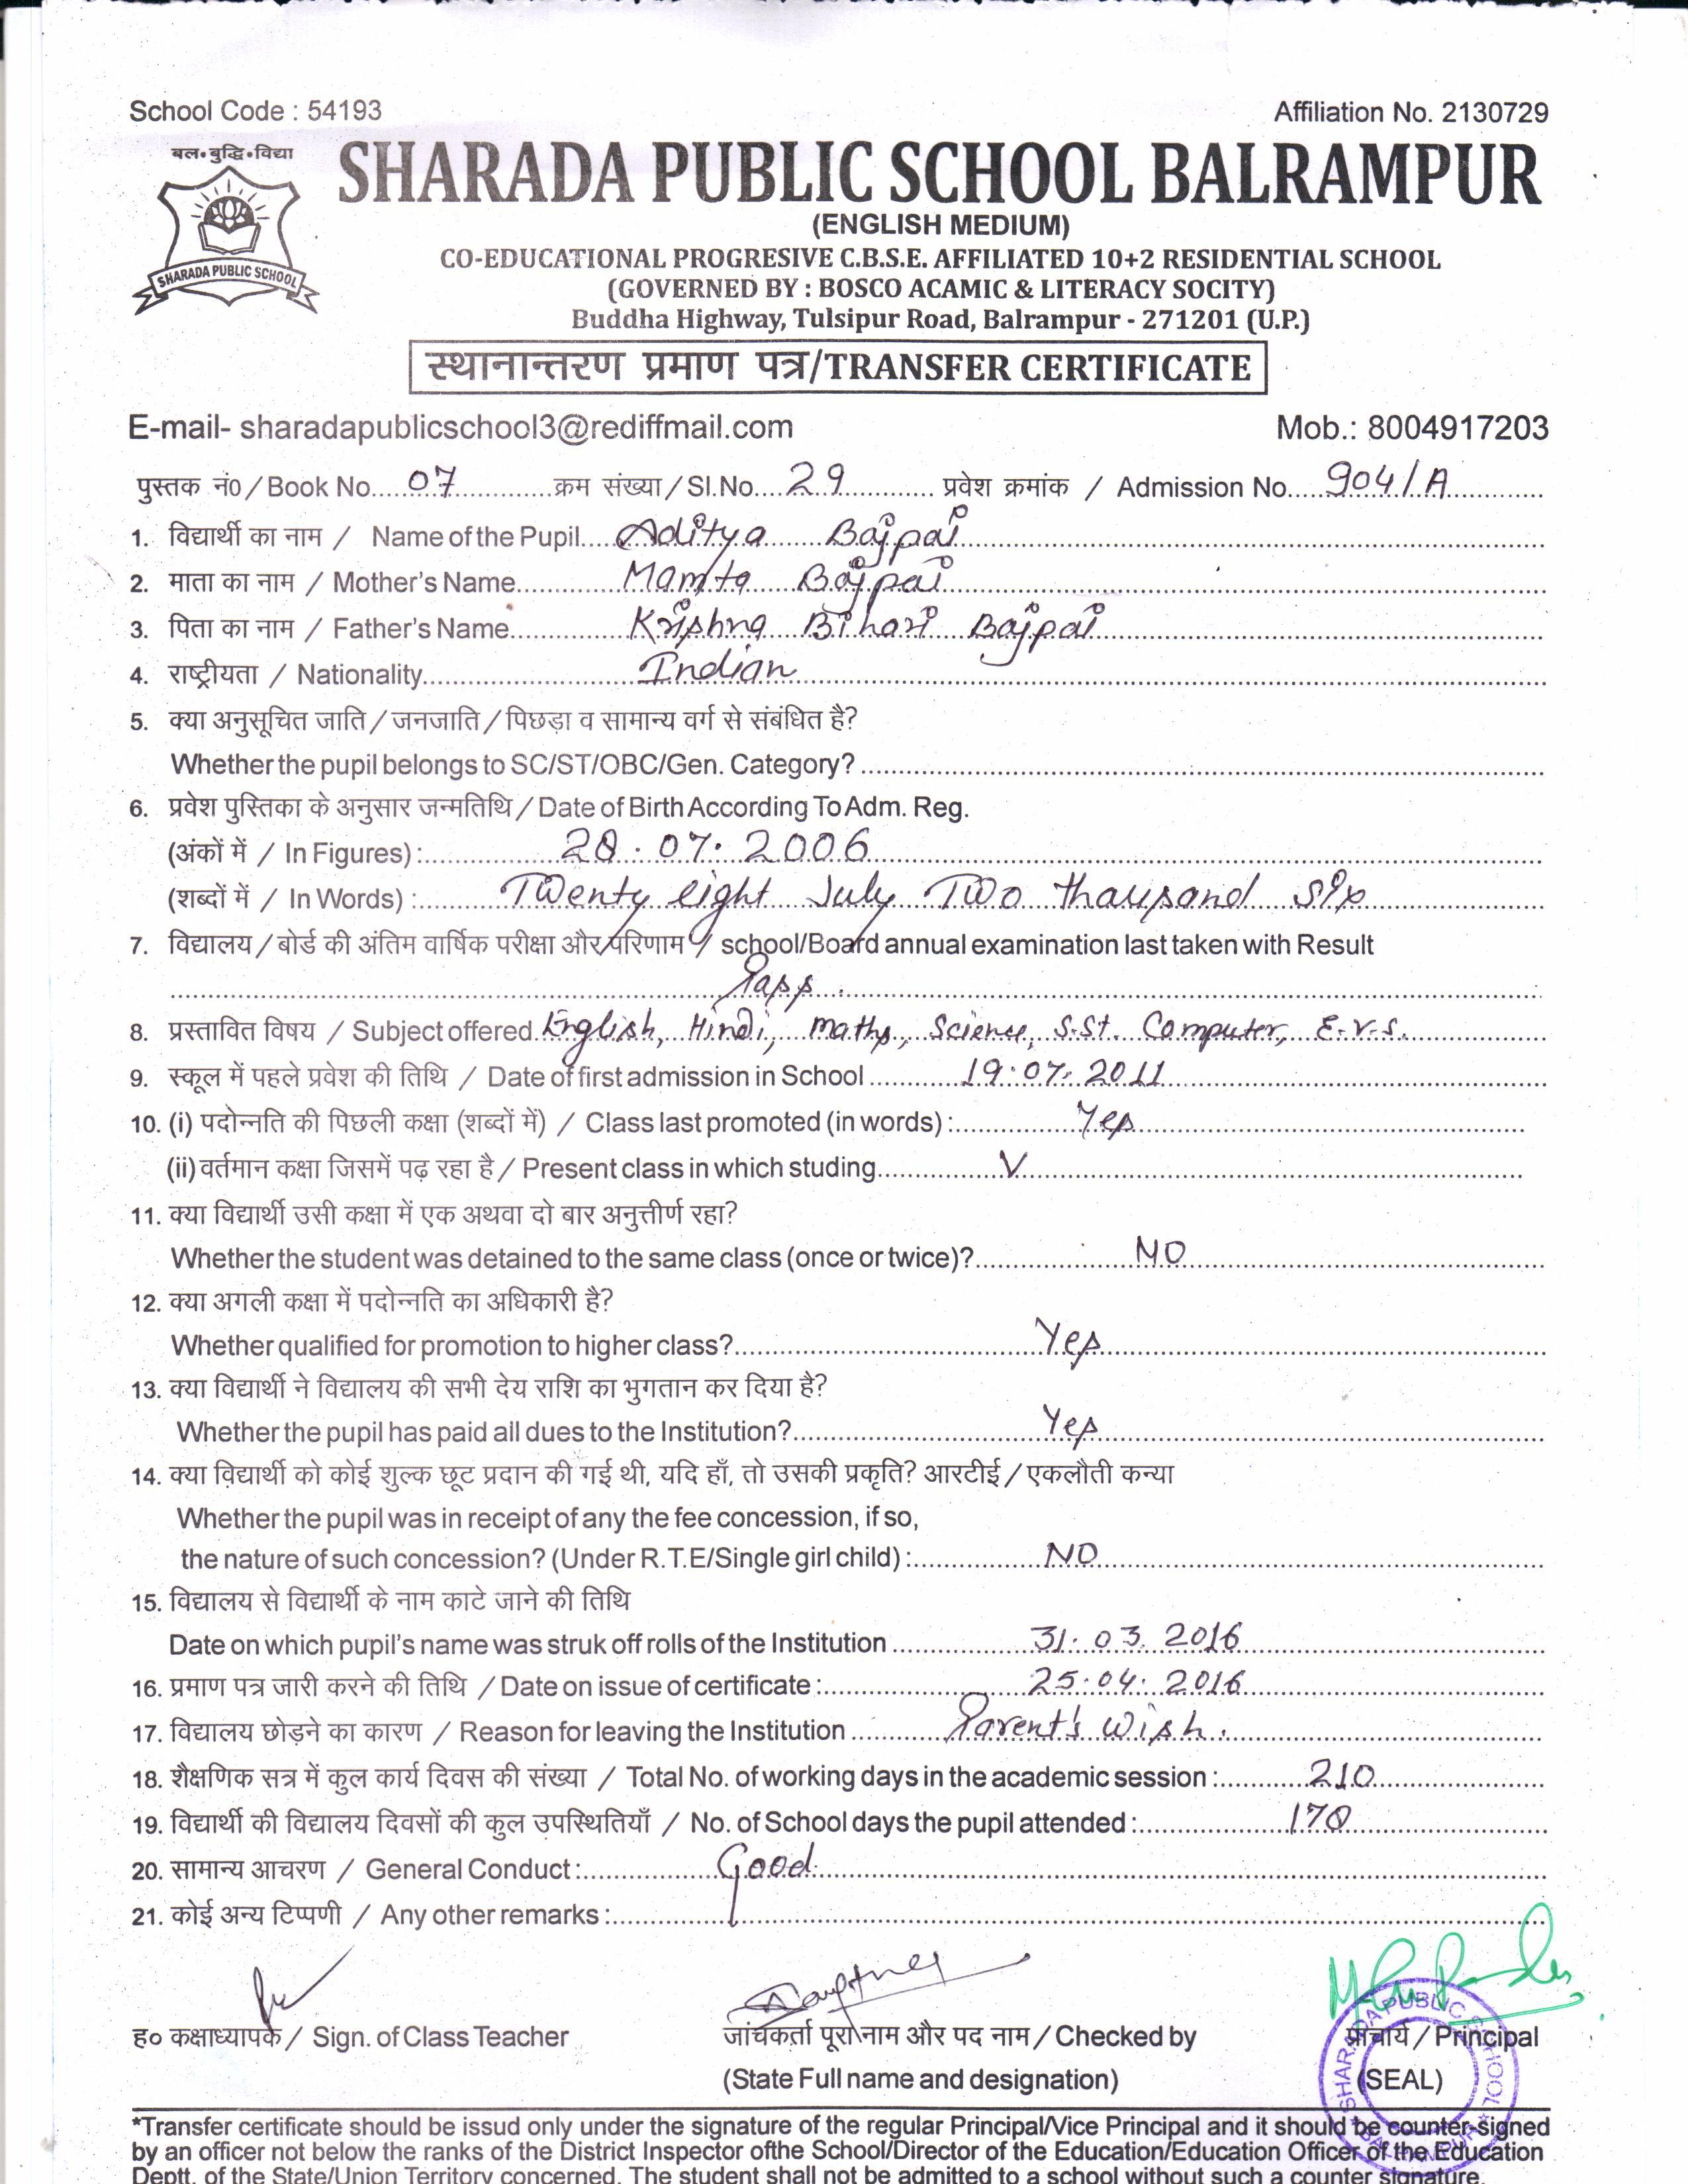 School Code : 54193 Affiliation No. 2130729
बल•बुद्धि•विद्या
SHARADA PUBLIC SCHOOL
SHARADA PUBLIC SCHOOL BALRAMPUR
(ENGLISH MEDIUM)
CO-EDUCATIONAL PROGRESIVE C.B.S.E. AFFILIATED 10+2 RESIDENTIAL SCHOOL
(GOVERNED BY : BOSCO ACAMIC & LITERACY SOCITY)
Buddha Highway, Tulsipur Road, Balrampur - 271201 (U.P.)
स्थानान्तरण प्रमाण पत्र/TRANSFER CERTIFICATE
E-mail- sharadapublicschool3@rediffmail.com Mob.: 8004917203
पुस्तक नं0 / Book No. 07 क्रम संख्या / Sl.No. 29 प्रवेश क्रमांक / Admission No. 904/A
1. विद्यार्थी का नाम / Name of the Pupil Aditya Bajpai
2. माता का नाम / Mother's Name Mamta Bajpai
3. पिता का नाम / Father's Name Krishna Bihari Bajpai
4. राष्ट्रीयता / Nationality Indian
5. क्या अनुसूचित जाति / जनजाति / पिछड़ा व सामान्य वर्ग से संबंधित है?
Whether the pupil belongs to SC/ST/OBC/Gen. Category?
6. प्रवेश पुस्तिका के अनुसार जन्मतिथि / Date of Birth According To Adm. Reg.
(अंकों में / In Figures) : 28.07.2006
(शब्दों में / In Words) : Twenty eight July Two thausand six
7. विद्यालय / बोर्ड की अंतिम वार्षिक परीक्षा और परिणाम / school/Board annual examination last taken with Result
Pass.
8. प्रस्तावित विषय / Subject offered English, Hindi, Maths, Science, S.St. Computer, E.V.S.
9. स्कूल में पहले प्रवेश की तिथि / Date of first admission in School 19.07.2011
10. (i) पदोन्नति की पिछली कक्षा (शब्दों में) / Class last promoted (in words) : Yes
(ii) वर्तमान कक्षा जिसमें पढ़ रहा है / Present class in which studing V
11. क्या विद्यार्थी उसी कक्षा में एक अथवा दो बार अनुत्तीर्ण रहा?
Whether the student was detained to the same class (once or twice)? NO
12. क्या अगली कक्षा में पदोन्नति का अधिकारी है?
Whether qualified for promotion to higher class? Yes
13. क्या विद्यार्थी ने विद्यालय की सभी देय राशि का भुगतान कर दिया है?
Whether the pupil has paid all dues to the Institution? Yes
14. क्या विद्यार्थी को कोई शुल्क छूट प्रदान की गई थी, यदि हाँ, तो उसकी प्रकृति? आरटीई / एकलौती कन्या
Whether the pupil was in receipt of any the fee concession, if so,
the nature of such concession? (Under R.T.E/Single girl child) : NO
15. विद्यालय से विद्यार्थी के नाम काटे जाने की तिथि
Date on which pupil's name was struk off rolls of the Institution 31.03.2016
16. प्रमाण पत्र जारी करने की तिथि / Date on issue of certificate : 25.04.2016
17. विद्यालय छोड़ने का कारण / Reason for leaving the Institution Parent's Wish.
18. शैक्षणिक सत्र में कुल कार्य दिवस की संख्या / Total No. of working days in the academic session : 210
19. विद्यार्थी की विद्यालय दिवसों की कुल उपस्थितियाँ / No. of School days the pupil attended : 170
20. सामान्य आचरण / General Conduct : Good
21. कोई अन्य टिप्पणी / Any other remarks :
ह० कक्षाध्यापक / Sign. of Class Teacher जांचकर्ता पूरा नाम और पद नाम / Checked by प्राचार्य / Principal
(State Full name and designation) (SEAL)
SHARADA PUBLIC SCHOOL BALRAMPUR
*Transfer certificate should be issud only under the signature of the regular Principal/Vice Principal and it should be counter-signed
by an officer not below the ranks of the District Inspector ofthe School/Director of the Education/Education Officer of the Education
Deptt. of the State/Union Territory concerned. The student shall not be admitted to a school without such a counter signature.